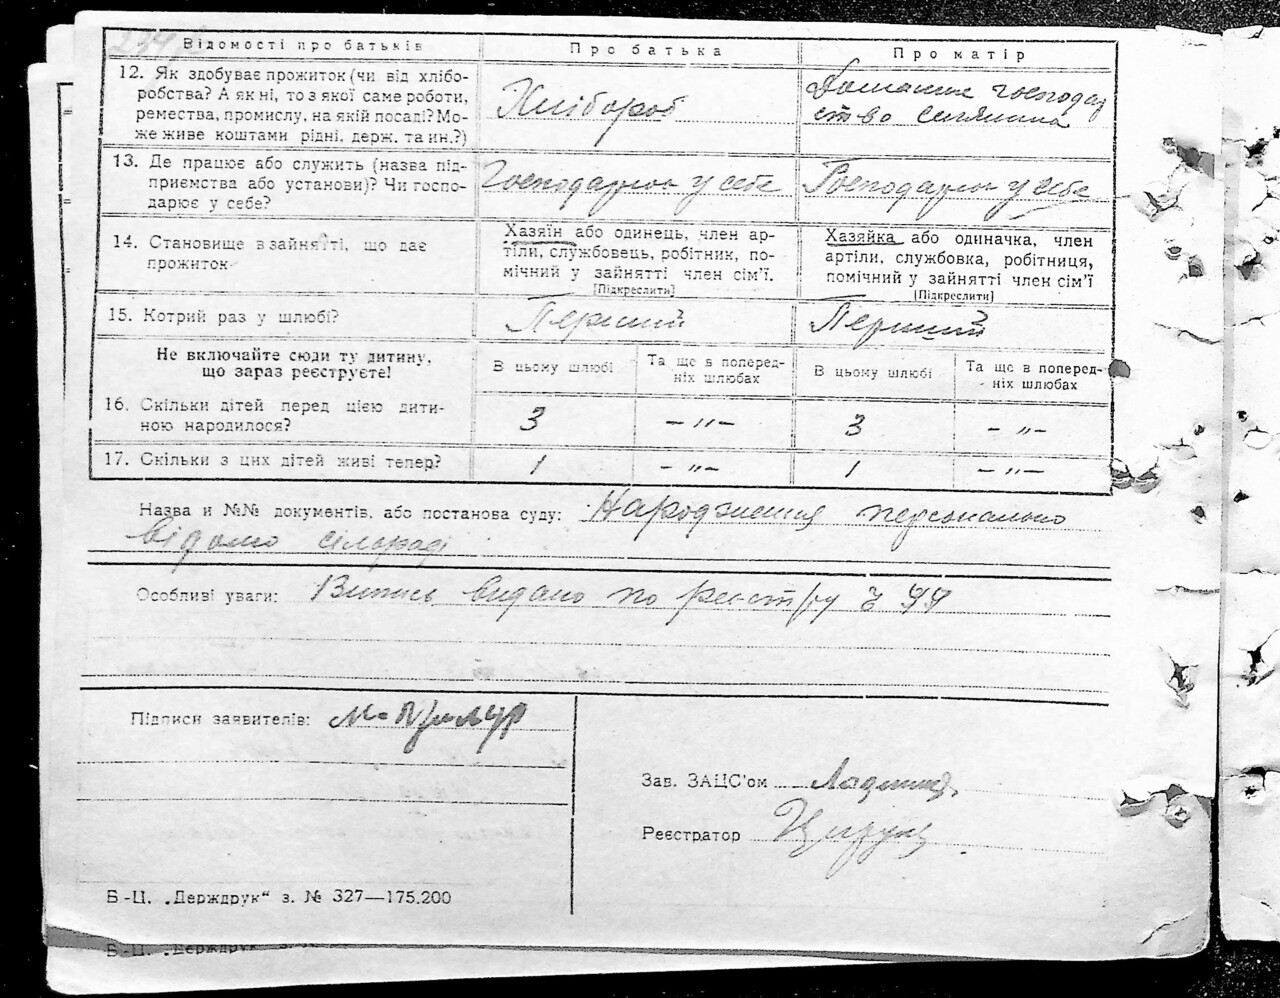 234
Відомості про батьків
Про батька
Про матір
12. Як здобуває прожиток (чи від хлібо-
робства? А як ні, то з якої саме роботи,
ремества, промислу, на якій посаді? Мо-
же живе коштами рідні, держ. та ин.?)
Хлібороб
Домашнє господар
ство селянина
13. Де працює або служить (назва під-
приємства або установи)? Чи госпо-
дарює у себе?
Господарює у себе
Господарює у себе
14. Становище в зайнятті, що дає
прожиток
Хазяїн або одинець, член ар-
тіли, службовець, робітник, по-
мічний у зайнятті член сім'ї.
[Підкреслити]
Хазяйка або одиначка, член
артіли, службовка, робітниця,
помічний у зайнятті член сім'ї
[Підкреслити]
15. Котрий раз у шлюбі?
Перший
Перший
Не включайте сюди ту дитину,
що зараз реєструєте!
В цьому шлюбі
Та ще в поперед-
ніх шлюбах
В цьому шлюбі
Та ще в поперед-
ніх шлюбах
16. Скільки дітей перед цією дити-
ною народилося?
3
-"-
3
-"-
17. Скільки з цих дітей живі тепер?
1
-"-
1
-"-
Назва и №№ документів, або постанова суду: Народження персонально
відомо сілораді
Особливі уваги: Випись видано по реєстру ч 99
Підписи заявителів:
Зав. ЗАЦС'ом
Реєстратор
Б-Ц. „Держдрук“ з. № 327—175.200
Б-Ц. „Держдрук“ з.